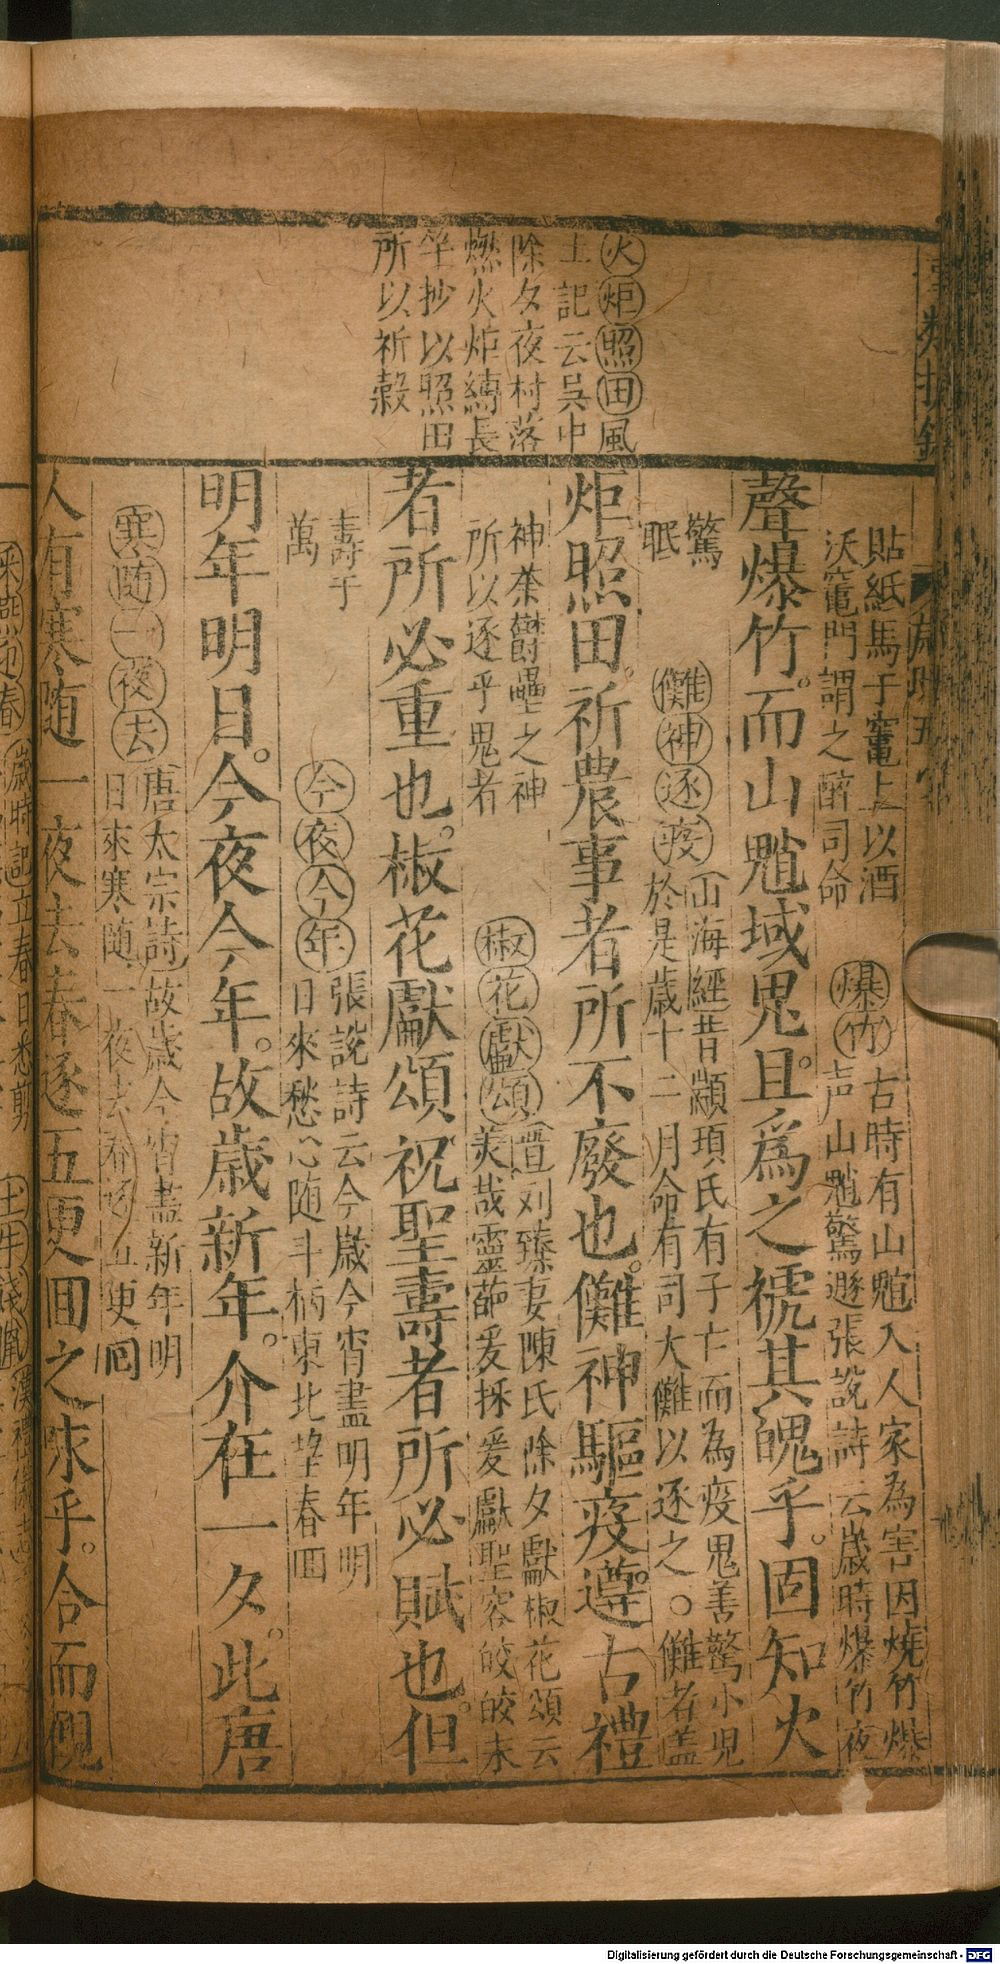 火炬照田風
土記云吳中
除夕夜村落
燃火炬縛長
竿抄以照田
所以祈穀
貼紙馬于竈上以酒
沃竈門謂之醉司命
爆竹古時有山魈入人家為害因燒竹爆
声山魈驚遯張說詩云歲時爆竹夜
聲爆竹。而山魈域鬼。且爲之褫其魄乎。固知火
驚
眠
儺神逐疫山海經昔顓頊氏有子亡而為疫鬼善驚小児
於是歲十二月命有司大儺以逐之〇儺者盖
炬照田。祈農事者所不廢也。儺神驅疫。遵古禮
神荼欝壘之神
所以逐乎鬼者
椒花獻頌晋刘臻妻陳氏除夕獻椒花頌云
美哉靈葩爰採爰獻聖容皎皎永
者所必重也。椒花獻頌祝聖壽者所必賦也。但
壽于
萬
今夜今年張說詩云今歲今宵盡明年明
日來愁心随斗柄東北望春囬
明年明日。今夜今年。故歲新年。介在一夕。此唐
寒随一夜去唐太宗詩故歲今宵盡新年明
日來寒随一夜去春逐五更囬
人有寒随一夜去春逐五更囬之味乎。合而觀
Digitalisierung gefördert durch die Deutsche Forschungsgemeinschaft - DFG